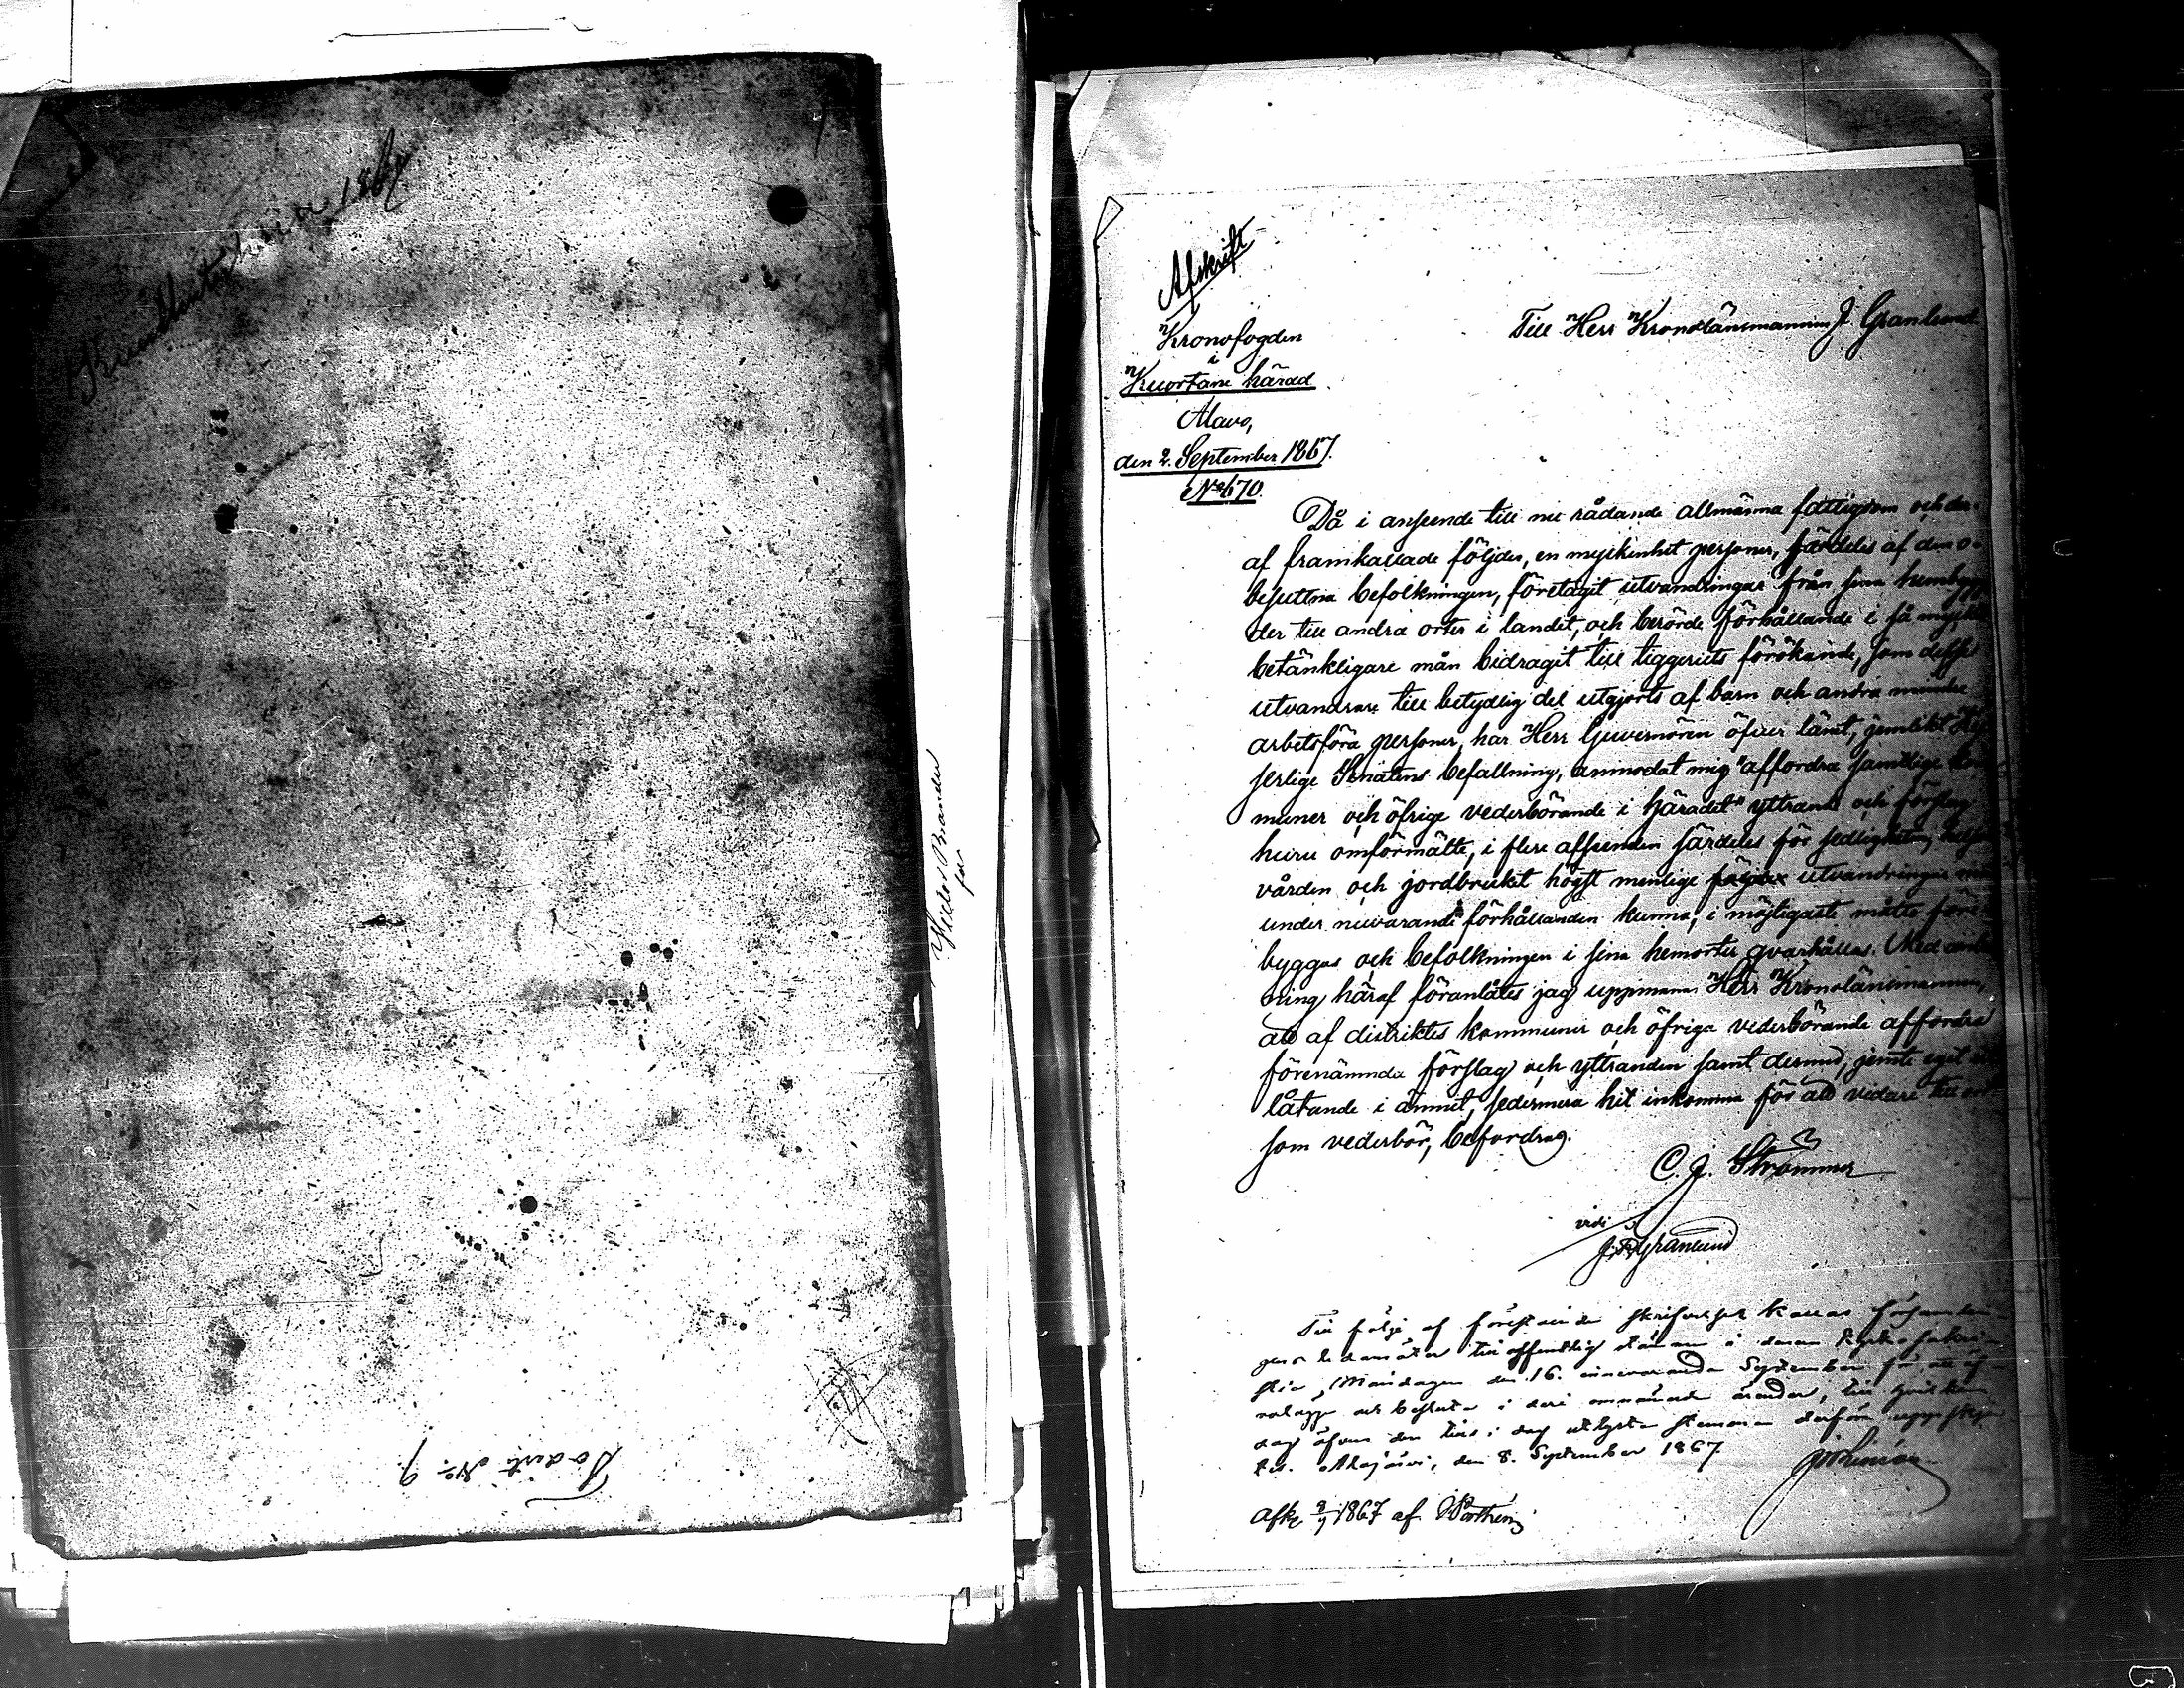 1867
Bordt No 9.
Afskrift
Kronofogden
i
Kuortane härad
Alavo,
den 2. September 1867.
No 670.
Till Herr Kronolänsmannen J. Granlund
Då i anseende till nu rådande allmänna fattigdom och der-
af framkallade följder, en myckenhet personer, särdeles af den o-
besuttna befolkningen, företagit utvandringar från sina hembyg-
der till andra orter i landet, och berörde förhållande i så mycket
betänkligare mån bidragit till tiggeriets förökande, som dessa
utvandrare till betydlig del utgjorts af barn och andra mindre
arbetsföra personer, har Herr Guvernören öfver länet, jemlikt Kej-
serlige Senatens befallning, anmodat mig "affordra samtlige kom-
muner och öfrige vederbörande i häradet" yttrande och förslag
huru omförmälte, i flere afseenden särdeles för sedligheten, helso-
vården och jordbruket högst menlige utvandringar
under nuvarande förhållanden kunna, i möjligaste måtto före-
byggas och befolkningen i sina hemorter qvarhållas. Med
ning häraf föranlåtes jag uppmana Herr Kronolänsmannen,
att af distriktets kommuner och öfriga vederbörande affordra
förenämnda förslag och yttranden samt dermed, jemte eget ut-
låtande i ämnet, sedermera hit inkomma för att vidare till ort
som vederbör, befordras.
C. J. Strömmer
vidi
Granlund
Till följe af förestående skrifvelse kallas församlin-
gens ledamöter till offentlig stämma i denna kyrkas sakri-
stia, Måndagen den 16. innevarande September för att öf-
verlägga och besluta i deri omnämnde ärender, till hvilken
dag äfven den till i dag utlysta stämman derföre uppskju-
tes. Alajärvi, den 8. September 1867
Afk 8/9 1867 af